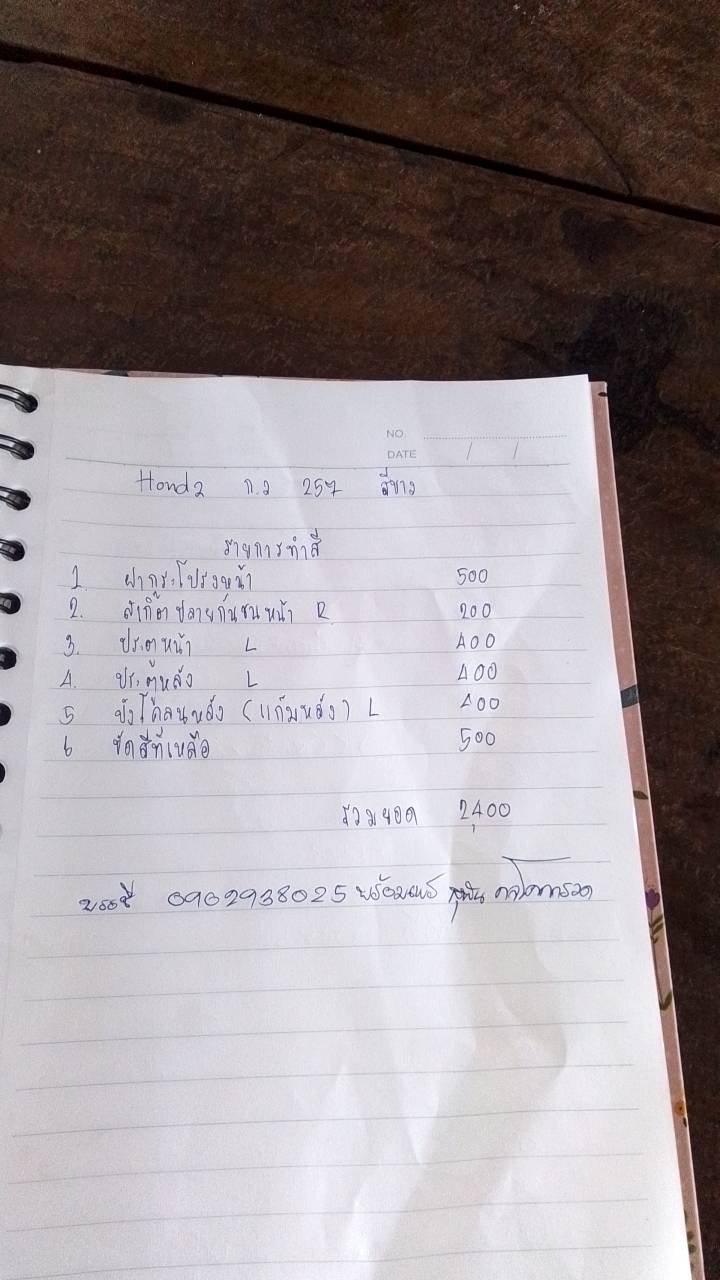 NO.
DATE / /
Honda ก.ว 257 สีขาว
รายการทำสี
1. ฝากระโปรงหน้า 500
2. สเกิ๊ต ปลายกันชนหน้า R 200
3. ประตูหน้า L 400
4. ประตูหลัง L 400
5 บังโคลนหลัง (แก้มหลัง) L 400
6 ขัดสีที่เหลือ 500
รวมยอด 2,400
บัญชี 0902938025 พร้อมเพย์